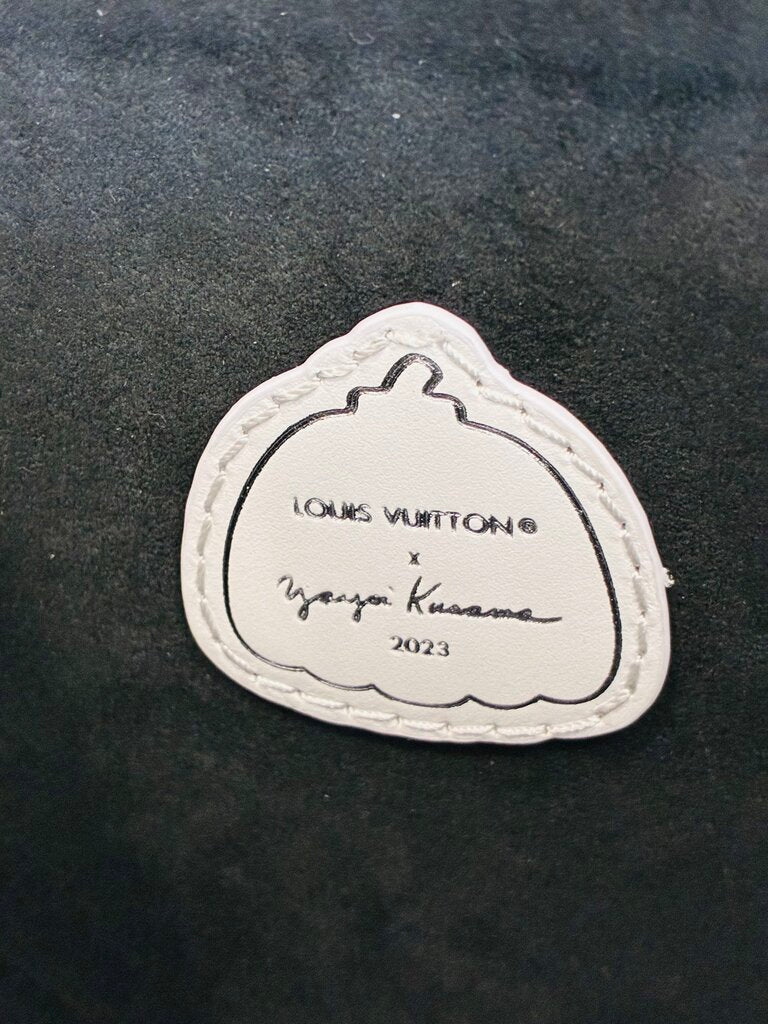 LOUIS VUITTON®
x
Yayoi Kusama
2023